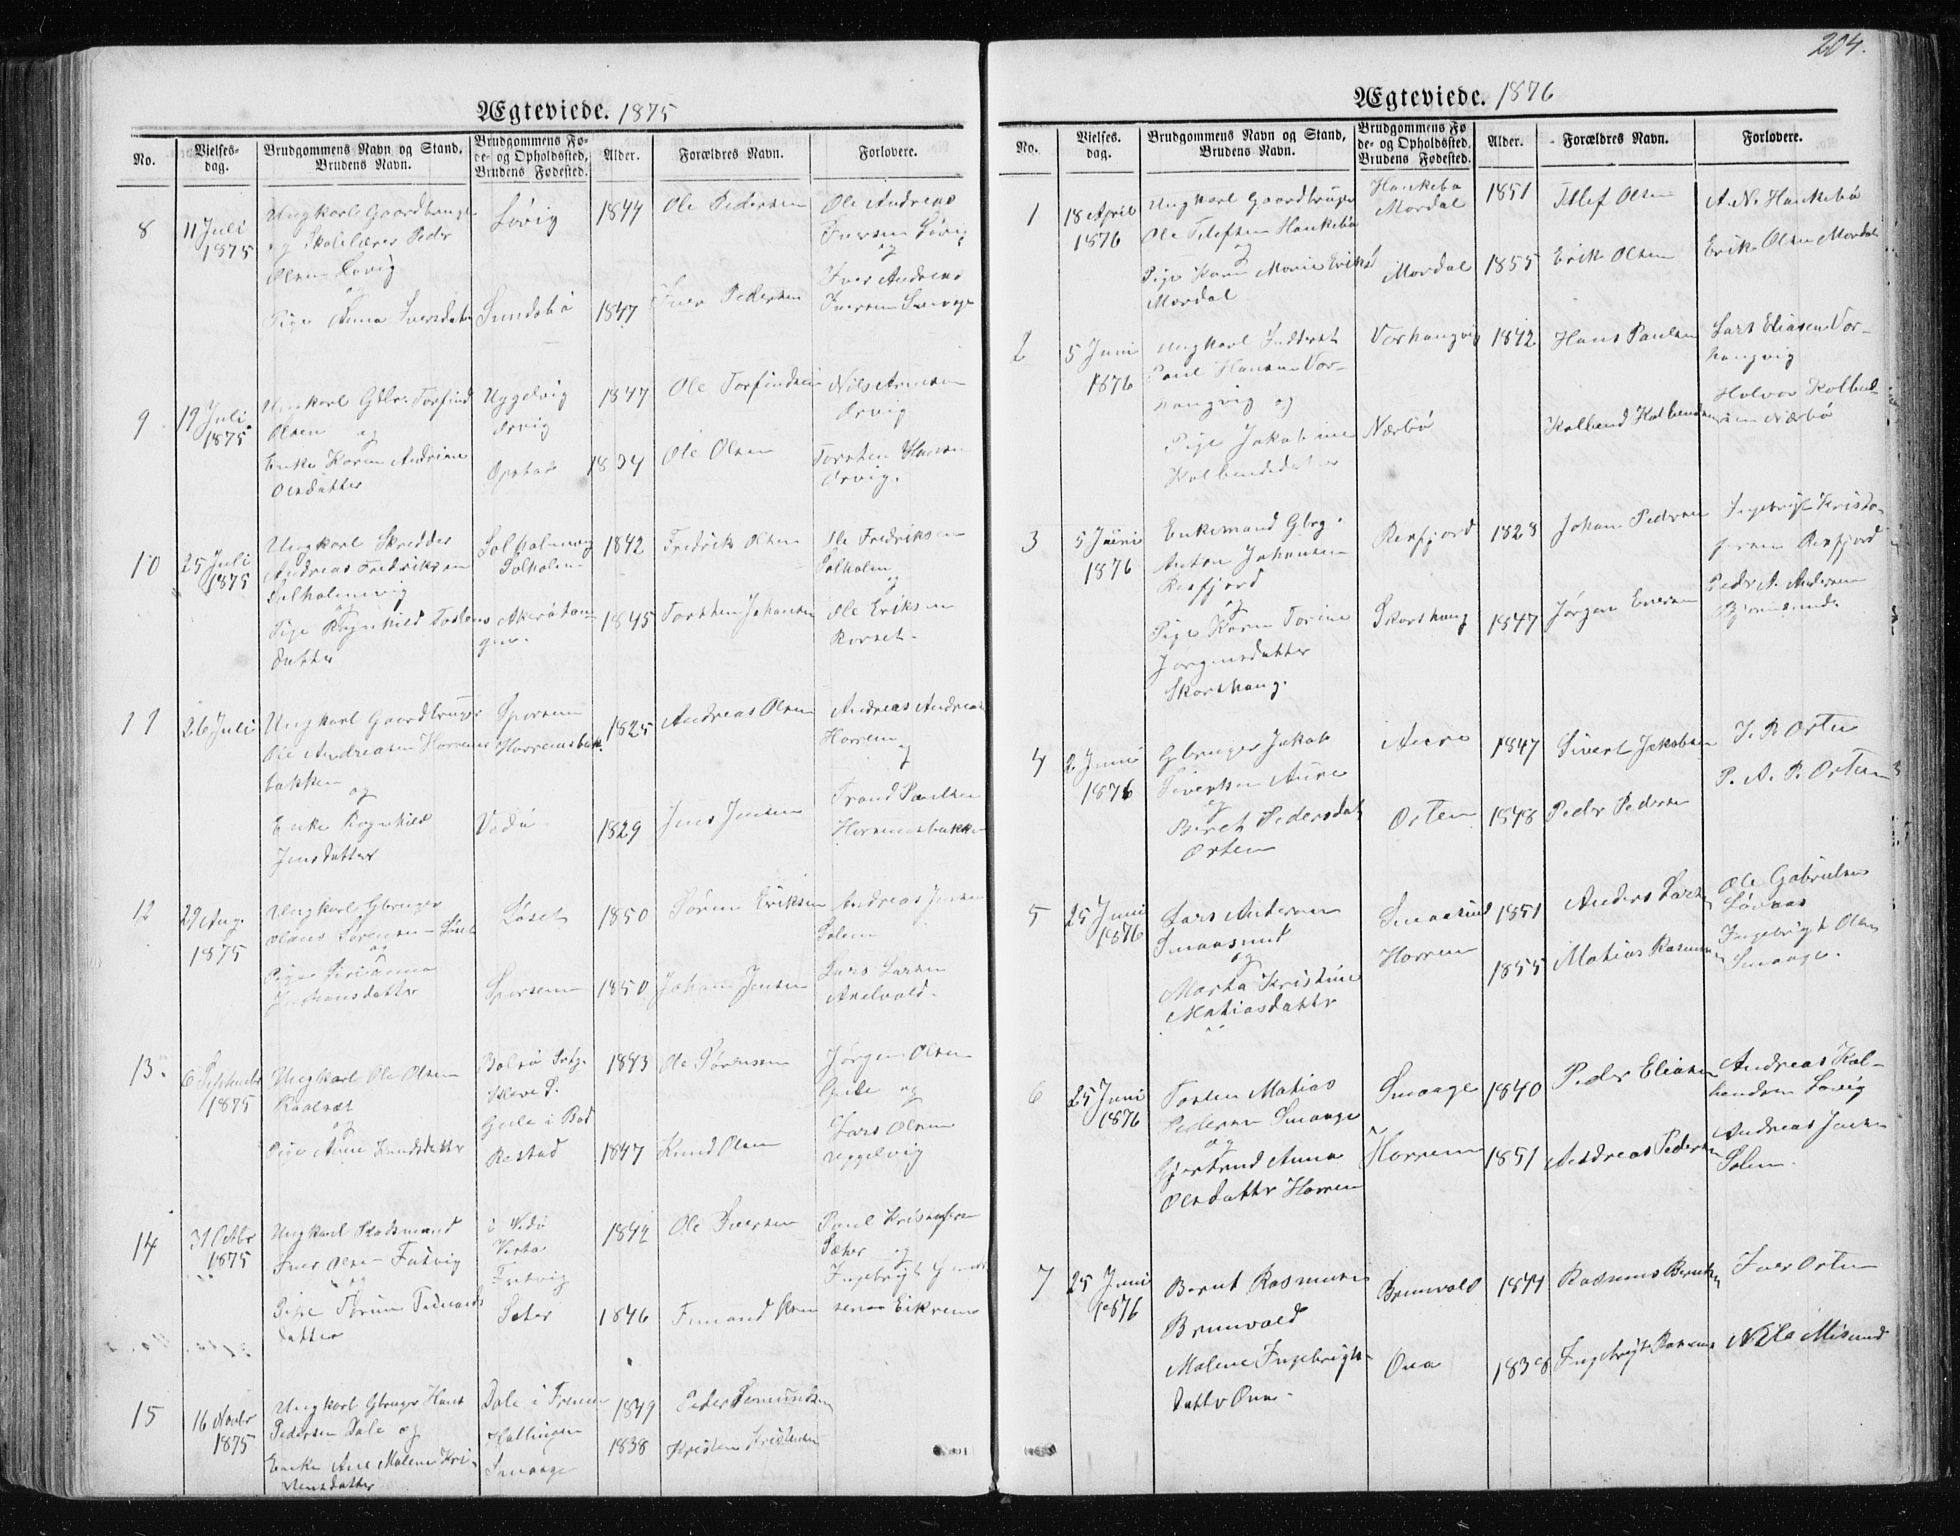 204.
Ægteviede. 1875
No.
Vielses-
dag.
Brudgommens Navn og Stand,
Brudens Navn.
Brudgommens Fø-
de- og Opholdssted,
Brudens Fødested.
Alder.
Forældres Navn.
Forlovere.
8
11 Juli
1875
Ungkarl Gaardbruger
og Skolelærer Peder
Olsen Løvig
Løvig
1844
Ole Pedersen
Ole Andreas
Iversen Løvig
og
Pige Anna Iversdatter
Sundsbø
1847
Iver Pedersen
Iver Andreas
Iversen
9
19 Juli
1875
Ungkarl Gbr. Torfind
Olsen og
Uggelvig
Orvig
1847
Ole Torfindsen
Nils Arnesen
Orvig
Enke Karen Andrine
Olsdatter
Opstad
Ole Olsen
Torsten Hansen
Orvig.
10
25 Juli
1875
Ungkarl Skredder
Andreas Fredriksen
Solholmvig
og
Solholmvig
Solholmen
1842
Fredrik Olsen
Ole Fredriksen
Solholm
og
Pige Ragnhild Tostens
datter
Akerøtan-
gen.
1845
Torsten Johansen
Ole Eriksen
Rorset.
11
26 Juli
Ungkarl Gaardbruger
Ole Andreasen Horrems
bakken
og
Sporsem
Horremsbak.
1825
Andreas Olsen
Andreas Andreas
Horrem
og
Enke Ragnhild
Jensdatter
Vedø
1829
Jens Jensen
Trond Paulsen
Horremsbakken
12
29 Aug.
1875
Ungkarl Gbruger
Olaus Sørensen Løset
og
Løset
1850
Søren Eriksen
Andreas Jensen
Solem
Pige
Johansdatter
Sporsem
1850
Johan Jensen
Lars Larsen
Arelvold.
13.
6 September
1875
Ungkarl Ole Olsen
og
Bolsø Prstg.
Kleve S.
Gule i Bod
1843
Ole Sørensen
Jørgen Olsen
Gule og
Pige Anne Knudsdatter
Restad
1847
Knud Olsen
Lars Olsen
Uggelvig
14
31 Octbr
1875
Ungkarl Pladsmand
Iver Olsen Futvig
og
i Vedø
Vestad
Futvig
1842
Ole Iversen
Paul Kristofersen
Sæter og
Ingebrigt
Pige
datter
Seter
1846
sen Eikrem
15
16 Novbr
1875
Ungkarl Gbruger Hans
Pedersen Dale og
Dale i Frenen
1849
Peder
Enke Ane Malene Kri-
stensdatter
Smaage
1838
Kristen Kristensen
Ægteviede. 1876
No.
Vielses-
dag.
Brudgommens Navn og Stand,
Brudens Navn.
Brudgommens Fø
de- og Opholdssted,
Brudens Fødested.
Alder.
Forældres Navn.
Forlovere.
1
18 April
1876
Ungkarl Gaardbruger
Ole Tellefsen Haukebø
og
Haukebø
Mordal
1851
Tellef Olsen
A. N. Haukebø
Pige Karen Marie Eriksd
Mordal
Mordal
1855
Erik Olsen
Erik Olsen Mordal
2
5 Juni
1876
Ungkarl Inderst
Paul Hansen Vor-
haugvig og
Vorhaugvig
1842
Hans Paulsen
Lars Eliasen Vor-
haugvig
Pige Jakobine
Kolbendsdatter
Nærbø
Kolbend Kolbendsen
Halvor Kolbend-
sen Nærbø
3
5 Juni
1876
Enkemand Gbrg.
Anton Johansen
Rensfjord
og
Rensfjord
1828
Johan Pedersen
Ingebrigt Kristo-
fersen Rensfjord
Pige Karen Torine
Jørgensdatter
Skorshaug.
Skorshaug
1847
Jørgen Iversen
Peder A. Andersen
Bjørnsund.
4
2 Juni
1876
Gbruger Jakob
Sivertsen Aure
og
Aure
1847
Sivert Jakobsen
I. P. Orten
Beret Pedersdat
Orten
Orten
1848
Peder Pedersen
P. A. P. Orten
5
25 Juni
1876
Lars Andersen
Smaasund
og
Smaasund
1851
Anders Larsen
Ole Gabrielsen
Marta Kristine
Matiasdatter
Horrem
1855
Matias Rasmussen
Ingebrigt Olsen
Smaage.
6
25 Juni
1876
Torsten Matias
Pedersen Smaage
og
Smaage
1840
Peder Eliasen
Andreas Kol-
bendsen Løvig
Gjertrud Anna
Olsdatter Horrem
Horrem
1851
Andreas Pedersen
Andreas Jensen
Solem.
7
25 Juni
1876
Bernt Rasmussen
Brunvold
Brunvold
1844
Rasmus Berntsen
Iver Orten
Malene Ingebrigts-
datter Ona.
Ona
1838
Ingebrigt Rasmussen
Nils Misund